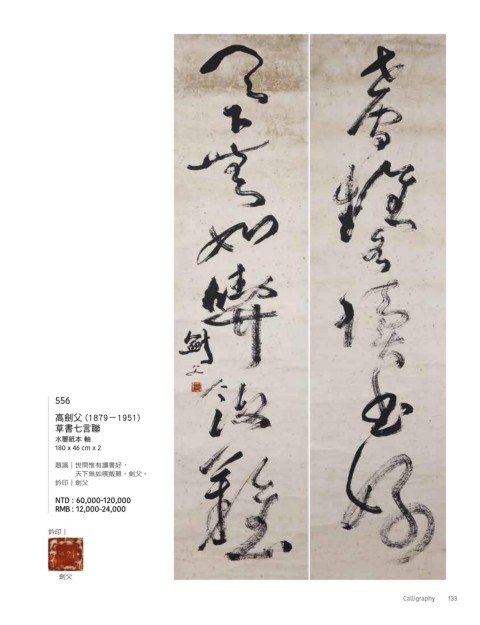 世間惟有讀書好
天下無如喫飯難
劍父
556
高劍父 (1879－1951)
草書七言聯
水墨紙本 軸
180 x 46 cm x 2
題識｜世間惟有讀書好，
天下無如喫飯難。劍父。
鈐印｜劍父
NTD : 60,000-120,000
RMB : 12,000-24,000
鈐印｜
劍父
Calligraphy 133